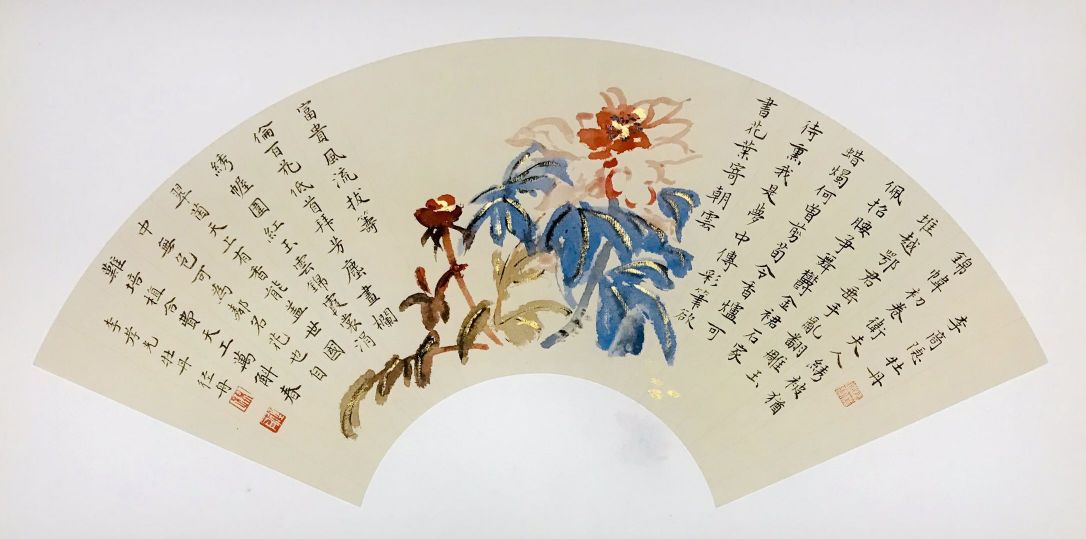 李商隱牡丹
錦幃初卷衛夫人繡被猶
堆越鄂君垂手亂翻雕玉
佩招腰爭舞鬱金裙石家
蜡燭何曾剪荀令香爐可
待熏我是夢中傳彩筆欲
書花葉寄朝雲
富貴風流拔等
倫百花低首拜芳塵畫欄
綉幄圍紅玉雲錦霞裳涓
翠茵天上有香能蓋世國
中無色可為鄰名花也自
難培植合費天工萬斛春
李孝光 牡丹